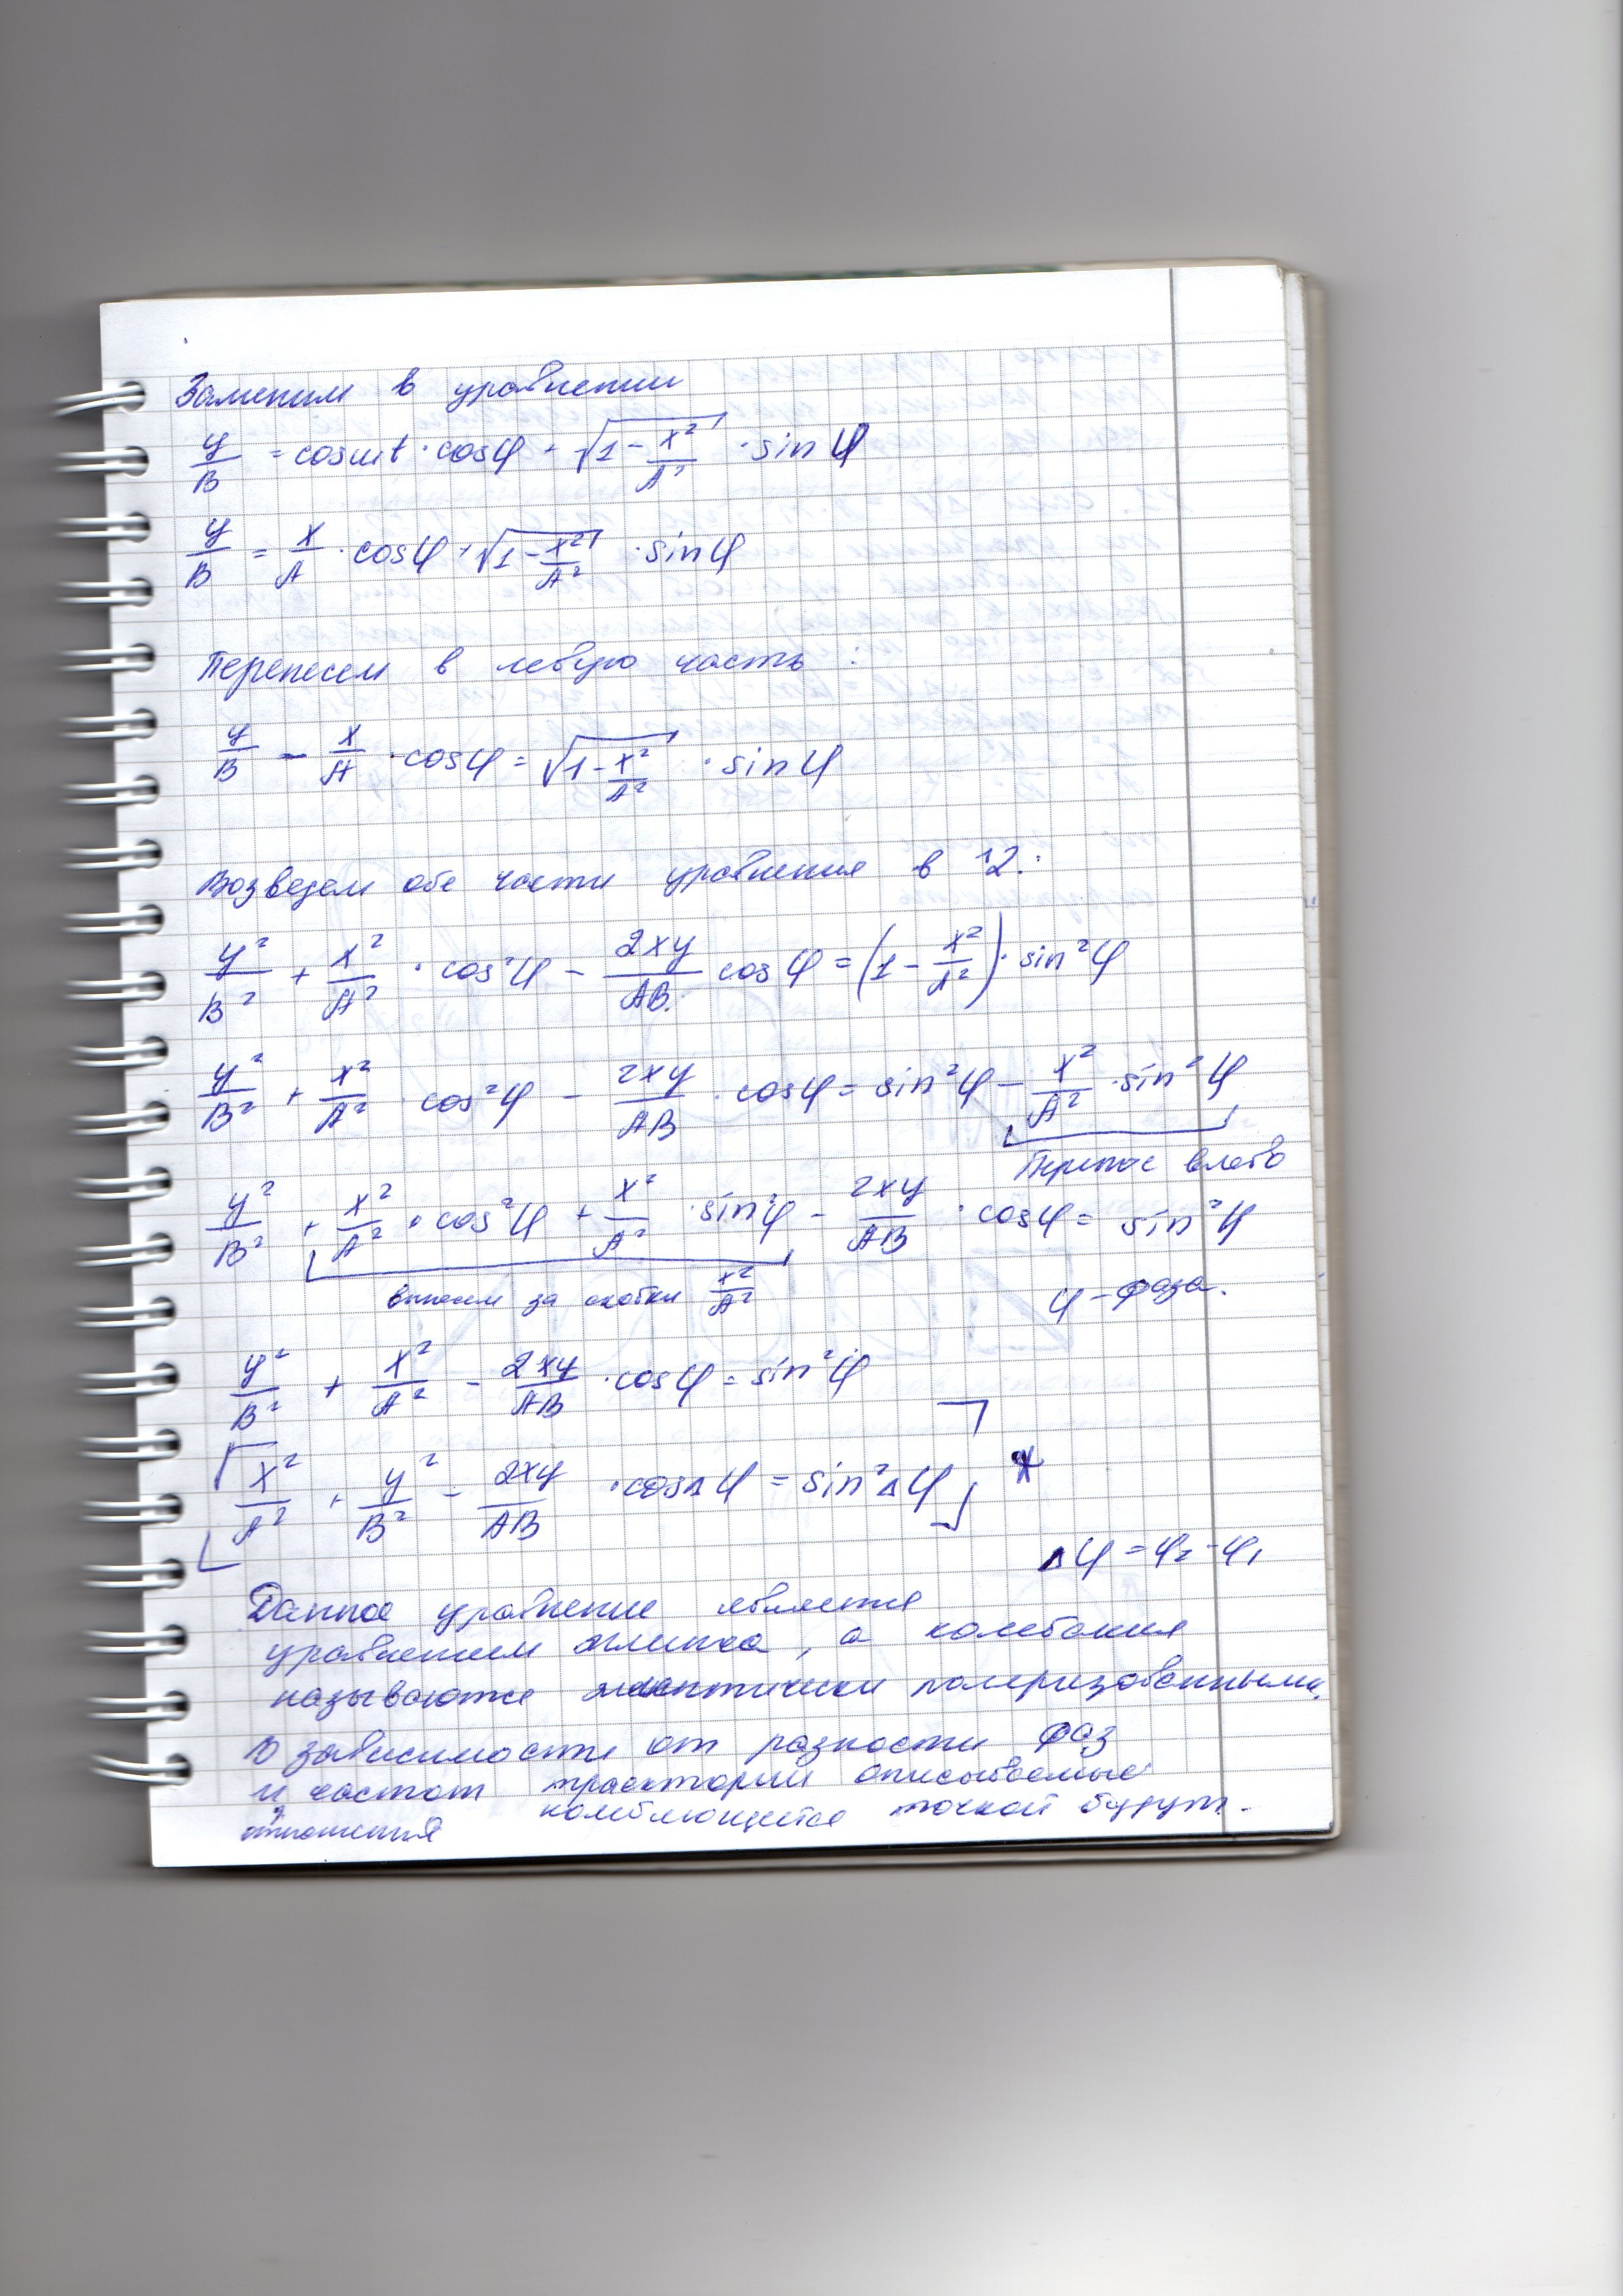 Заменим в уравнении
y/B = cosωt · cosφ - √(1 - x²/A²) · sin φ
y/B = x/A · cosφ · √(1 - x²/A²) · sinφ
Перенесем в левую часть :
y/B - x/A · cosφ = √(1 - x²/A²) · sinφ
Возведем обе части уравнения в ↑2:
y²/B² + x²/A² · cos²φ - 2xy/AB cosφ = (1 - x²/A²) · sin²φ
y²/B² + x²/A² · cos²φ - 2xy/AB · cosφ = sin²φ - x²/A² · sin²φ
Перенос влево
y²/B² + x²/A² · cos²φ + x²/A² · sin²φ - 2xy/AB · cosφ = sin²φ
вынесем за скобки x²/A²
φ - фаза.
y²/B² + x²/A² - 2xy/AB · cosφ = sin²φ
x²/A² + y²/B² - 2xy/AB · cosΔφ = sin²Δφ *
Δφ = φ₂ - φ₁
Данное уравнение является
уравнением эллипса, а колебания
называются эллиптически поляризованными.
В зависимости от разности фаз
и частот траектории описываемые
отношения колеблющейся точкой будут -